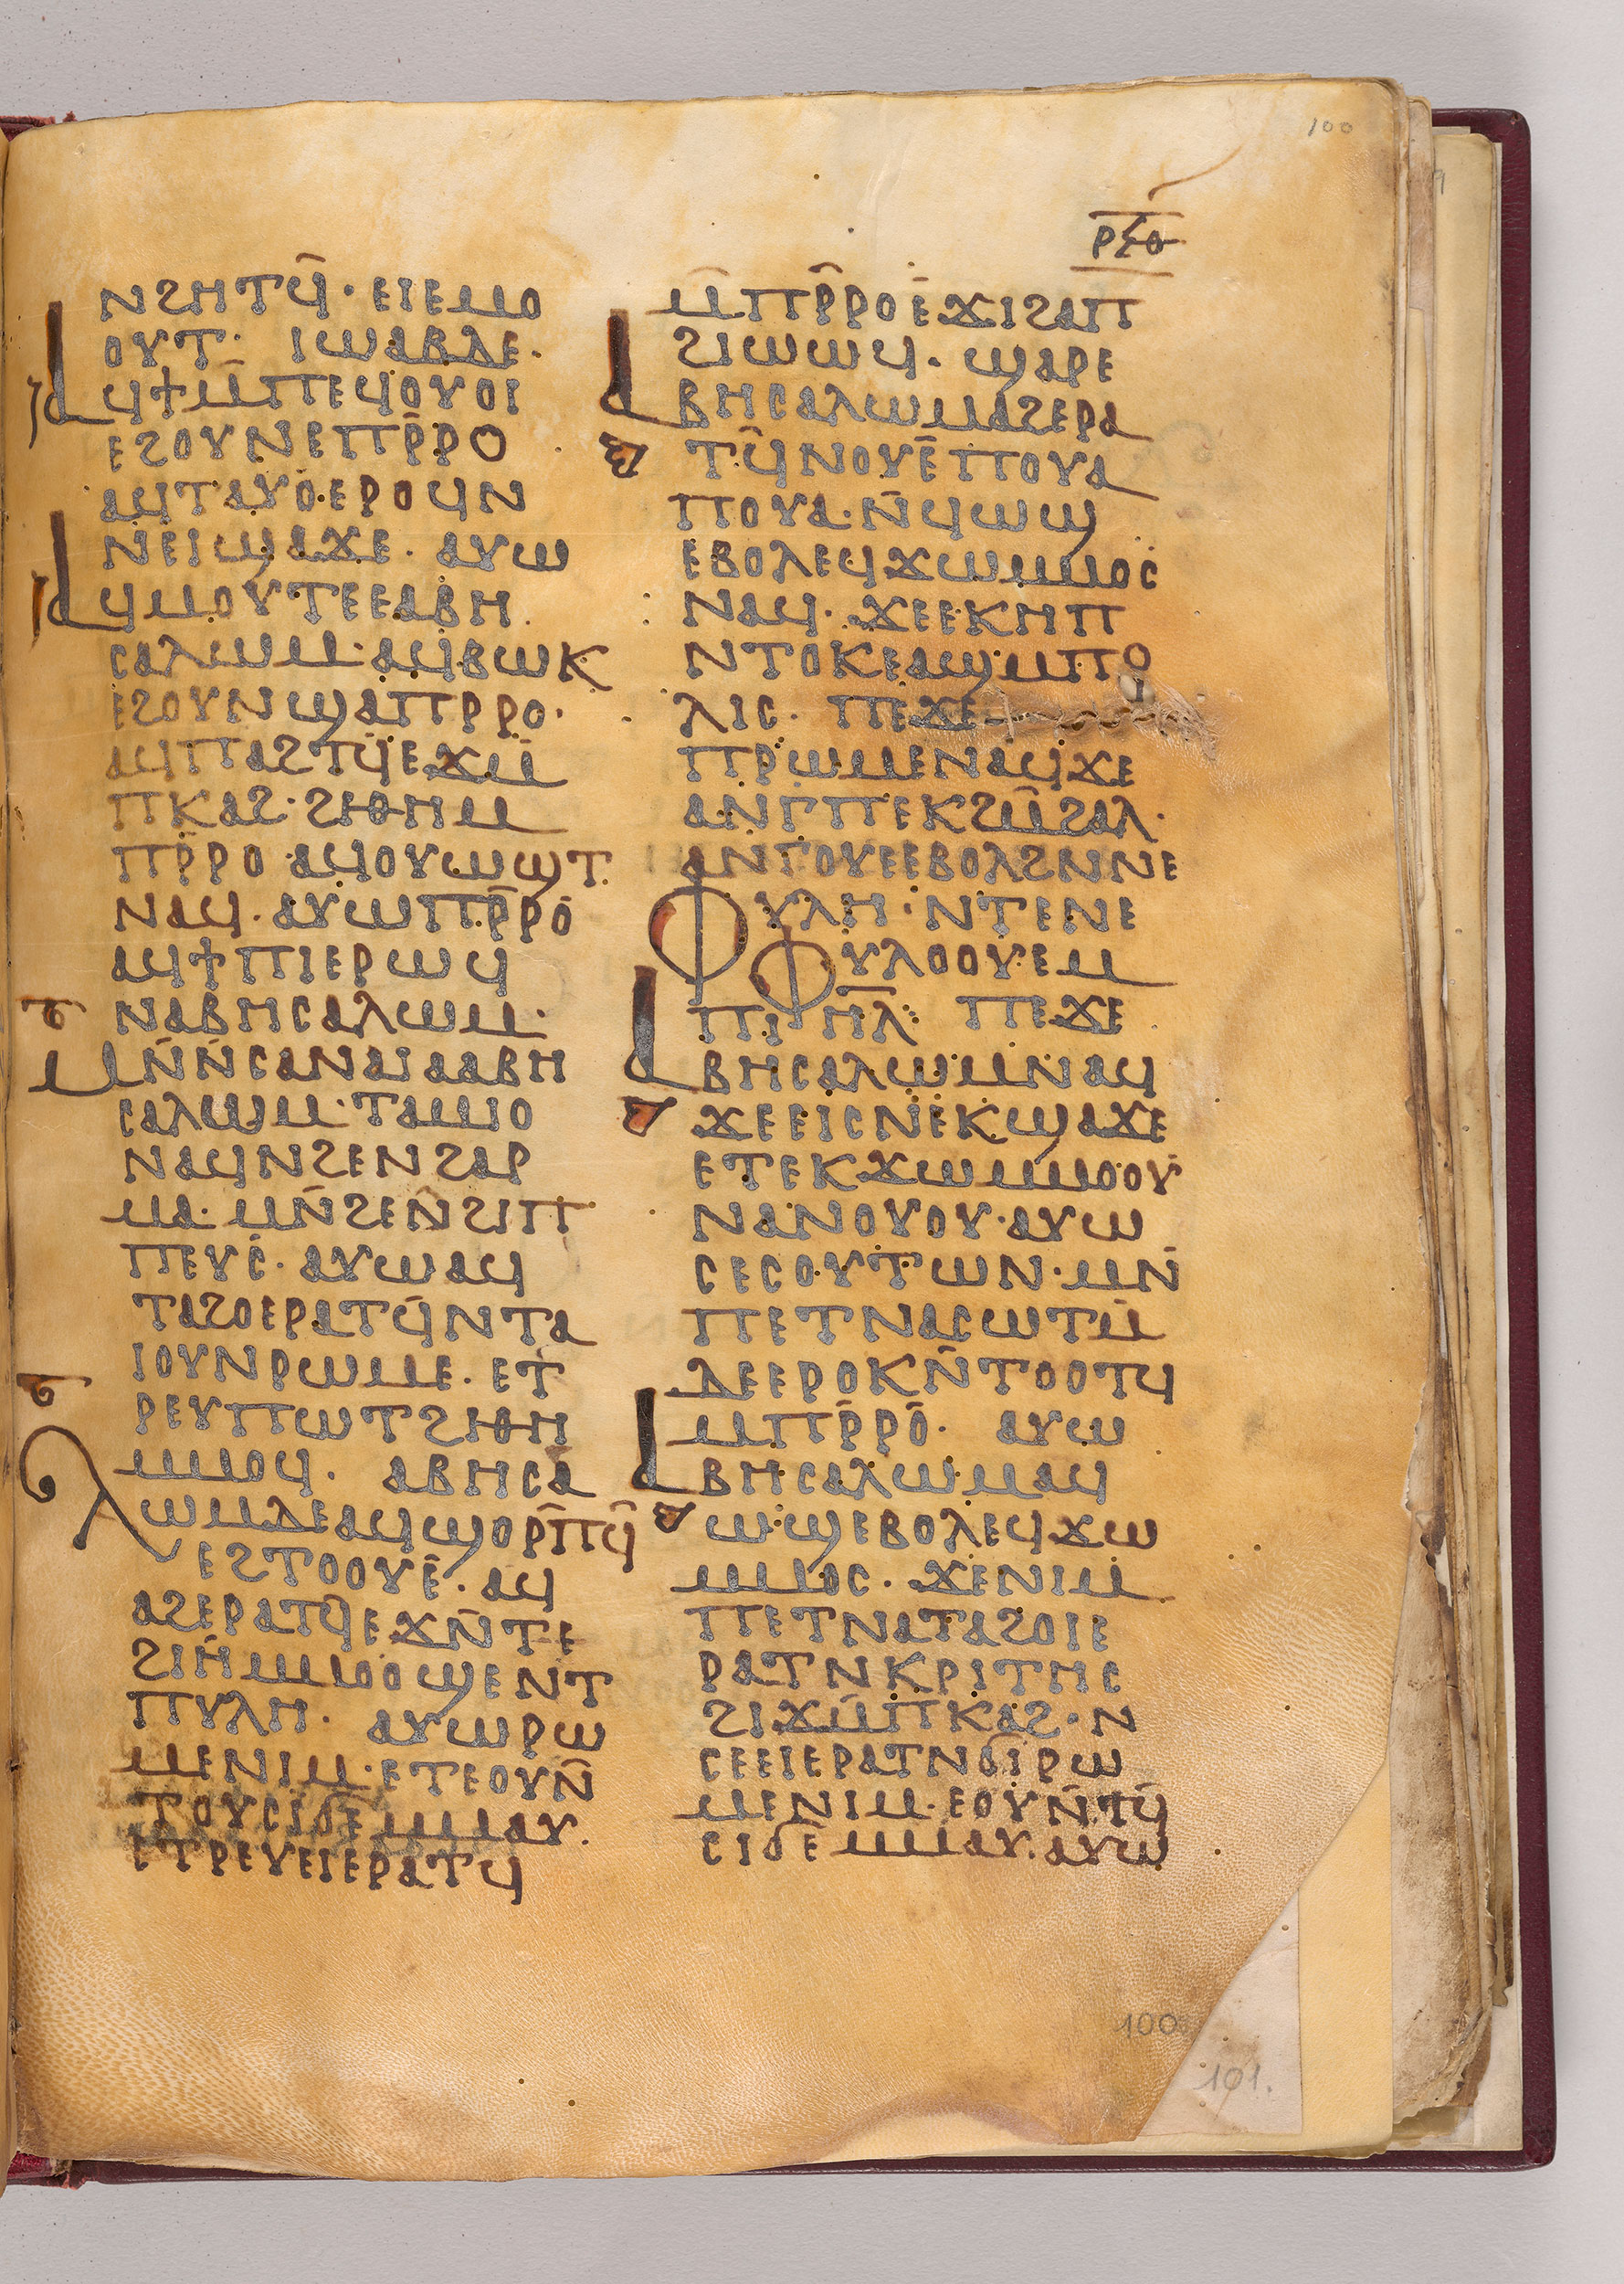 100
ⲣⲝⲑ
ⲛϩⲏⲧϥ̄· ⲉⲓⲉⲙⲟ
ⲟⲩⲧ· ⲓⲱⲁⲃⲇⲉ·
ⲁϥϯⲙ̄ⲡⲉϥⲟⲩⲟⲓ
ⲉϩⲟⲩⲛⲉⲡⲣ̄ⲣⲟ
ⲁϥⲧⲁⲩⲟ·ⲉⲣⲟϥⲛ
ⲛⲉⲓϣⲁϫⲉ· ⲁⲩⲱ
ⲁϥⲙⲟⲩⲧⲉⲉⲁⲃⲏ
ⲥⲁⲗⲱⲙ·ⲁϥⲃⲱⲕ
ⲉϩⲟⲩⲛϣⲁⲡⲣⲣⲟ·
ⲁϥⲡⲁϩⲧϥ̄ⲉϫⲙ̄
ⲡⲕⲁϩ·ϩⲓⲑⲏⲙ
ⲡⲣ̄ⲣⲟ·ⲁϥⲟⲩⲱϣⲧ
ⲛⲁϥ·ⲁⲩⲱⲡⲣ̄ⲣⲟ
ⲁϥϯⲡⲓⲉⲣⲱϥ
ⲛⲁⲃⲏⲥⲁⲗⲱⲙ·
ⲙⲛ̄ⲛ̄ⲥⲁⲛⲁⲓⲁⲁⲃⲏ
ⲥⲁⲗⲱⲙ·ⲧⲁⲙⲓⲟ
ⲛⲁϥⲛϩⲉⲛϩⲁⲣ
ⲙⲁ·ⲙⲛ̄ϩⲉⲛ̄ϩⲓⲡ
ⲡⲉⲩⲥ·ⲁⲩⲱⲁϥ
ⲧⲁϩⲟⲉⲣⲁⲧϥ̄ⲛⲧⲁ
ⲓⲟⲩⲛⲣⲱⲙⲉ·ⲉⲧ
ⲣⲉⲩⲡⲱⲧϩⲓⲑⲏ
ⲙⲙⲟϥ· ⲁⲃⲏⲥⲁ
ⲗⲱⲙⲇⲉⲁϥϣⲟⲣ̄ⲡϥ̄
ⲉϩⲧⲟⲟⲩⲉ̄·ⲁϥ
ⲁϩⲉⲣⲁⲧϥ̄ⲉϫⲛ̄ⲧⲉ
ϩⲓⲏⲙⲙⲟⲟϣⲉⲛⲧ
ⲡⲩⲗⲏ· ⲁⲩⲱⲣⲱ
ⲙⲉⲛⲓⲙ·ⲉⲧⲉⲟⲩⲛ̄
ⲧⲟⲩⲥⲓϭⲉⲙⲙⲁⲩ·
ⲉⲧⲣⲉⲩⲉⲓⲉⲣⲁⲧϥ
ⲙ̄ⲡⲣ̄ⲣⲟⲉϫⲓϩⲁⲡ
ϩⲓⲱⲱϥ· ϣⲁⲣⲉ
ⲁⲃⲏⲥⲁⲗⲱⲙⲁϩⲉⲣⲁ
ⲧϥ̄ⲛⲟⲩⲉ̄ⲡⲟⲩⲁ
ⲡⲟⲩⲁ·ⲛ̄ϥⲱϣ
ⲉⲃⲟⲗⲉϥϫⲱⲙⲙⲟⲥ
ⲛⲁϥ· ϫⲉⲉⲕⲏⲡ
ⲛⲧⲟⲕⲉⲁϣⲙⲡⲟ
ⲗⲓⲥ· ⲡⲉϫⲉ
ⲡⲣⲱⲙⲉⲛⲁϥϫⲉ
ⲁⲛⲅⲡⲉⲕϩⲙ̄ϩⲁⲗ·
ⲁⲛⲅⲟⲩⲉⲉⲃⲟⲗϩⲛⲛⲉ
ⲫⲩⲗⲏ·ⲛⲧⲉⲛⲉ
ⲫⲩⲗⲟⲟⲩⲉⲙ
ⲡⲓⲏ̄ⲗ· ⲡⲉϫⲉ
ⲁⲃⲏⲥⲁⲗⲱⲙⲛⲁϥ
ϫⲉⲉⲓⲥⲛⲉⲕϣⲁϫⲉ
ⲉⲧⲉⲕϫⲱⲙⲙⲟⲟⲩ
ⲛⲁⲛⲟⲩⲟⲩ·ⲁⲩⲱ
ⲥⲉⲥⲟⲩⲧⲱⲛ·ⲙⲛ̄
ⲡⲉⲧⲛⲁⲥⲱⲧⲙ̄
ⲇⲉⲉⲣⲟⲕⲛ̄ⲧⲟⲟⲧϥ
ⲙⲡⲣ̄ⲣⲟ̄· ⲁⲩⲱ
ⲁⲃⲏⲥⲁⲗⲱⲙⲁϥ
ⲱϣⲉⲃⲟⲗⲉϥϫⲱ
ⲙⲙⲟⲥ· ϫⲉⲛⲓⲙ
ⲡⲉⲧⲛⲁⲧⲁϩⲟⲓⲉ
ⲣⲁⲧⲛⲕⲣⲓⲧⲏⲥ
ϩⲓϫⲙ̄ⲡⲕⲁϩ·ⲛ
ⲥⲉⲉⲓⲉⲣⲁⲧⲛϭⲓⲣⲱ
ⲙⲉⲛⲓⲙ·ⲉⲟⲩⲛ̄ⲧϥ̄
ⲥⲓϭⲉ̄ⲙⲙⲁⲩ·ⲁⲩⲱ
100
101.